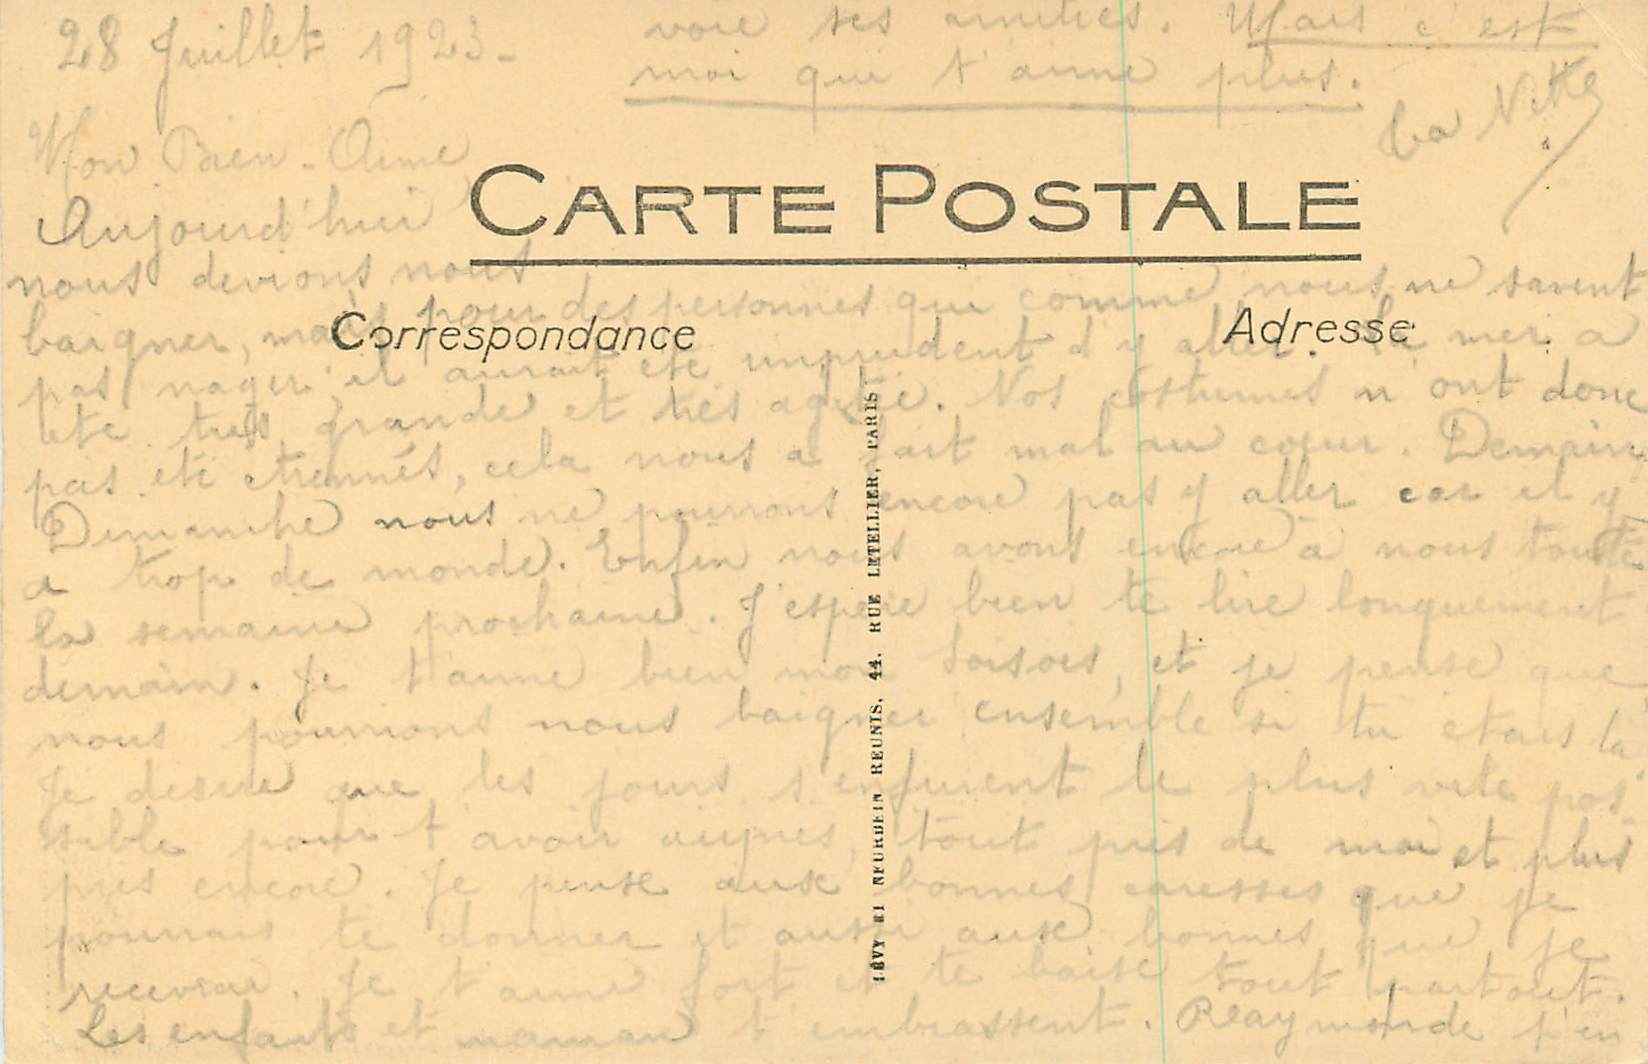 28 Juillet 1923.
Mon Bien-Aimé
Aujourd'hui
nous devions nous
baigner, mais pour des personnes qui comme nous ne savent
pas nager il aurait été imprudent d'y aller. La mer a
été très grande et très agitée. Nos costumes n'ont donc
pas été étrennés, cela nous a fait mal au coeur. Demain
Dimanche nous ne pourrons encore pas y aller car il y
a trop de monde. Enfin nous avons encore à nous toute
la semaine prochaine. J'espère bien te lire longuement
demain. Je t'aime bien mon et je pense que
nous pourrions nous baigner ensemble si tu étais là
Je désire que les jours s'enfuient le plus vite pos
sible pour t'avoir auprès, tout près de moi et plus
près encore. Je pense aux bonnes caresses que je
pourrais te donner et aussi aux bonnes que je
recevrai. Je t'aime fort et te baise tout partout.
Les enfants et maman t'embrassent. Raymonde t'en
voie ses amitiés. Mais c'est
moi qui t'aime plus.
CARTE POSTALE
Correspondance
Adresse
LÉVY ET NEURDEIN RÉUNIS, 44, RUE LETELLIER, PARIS